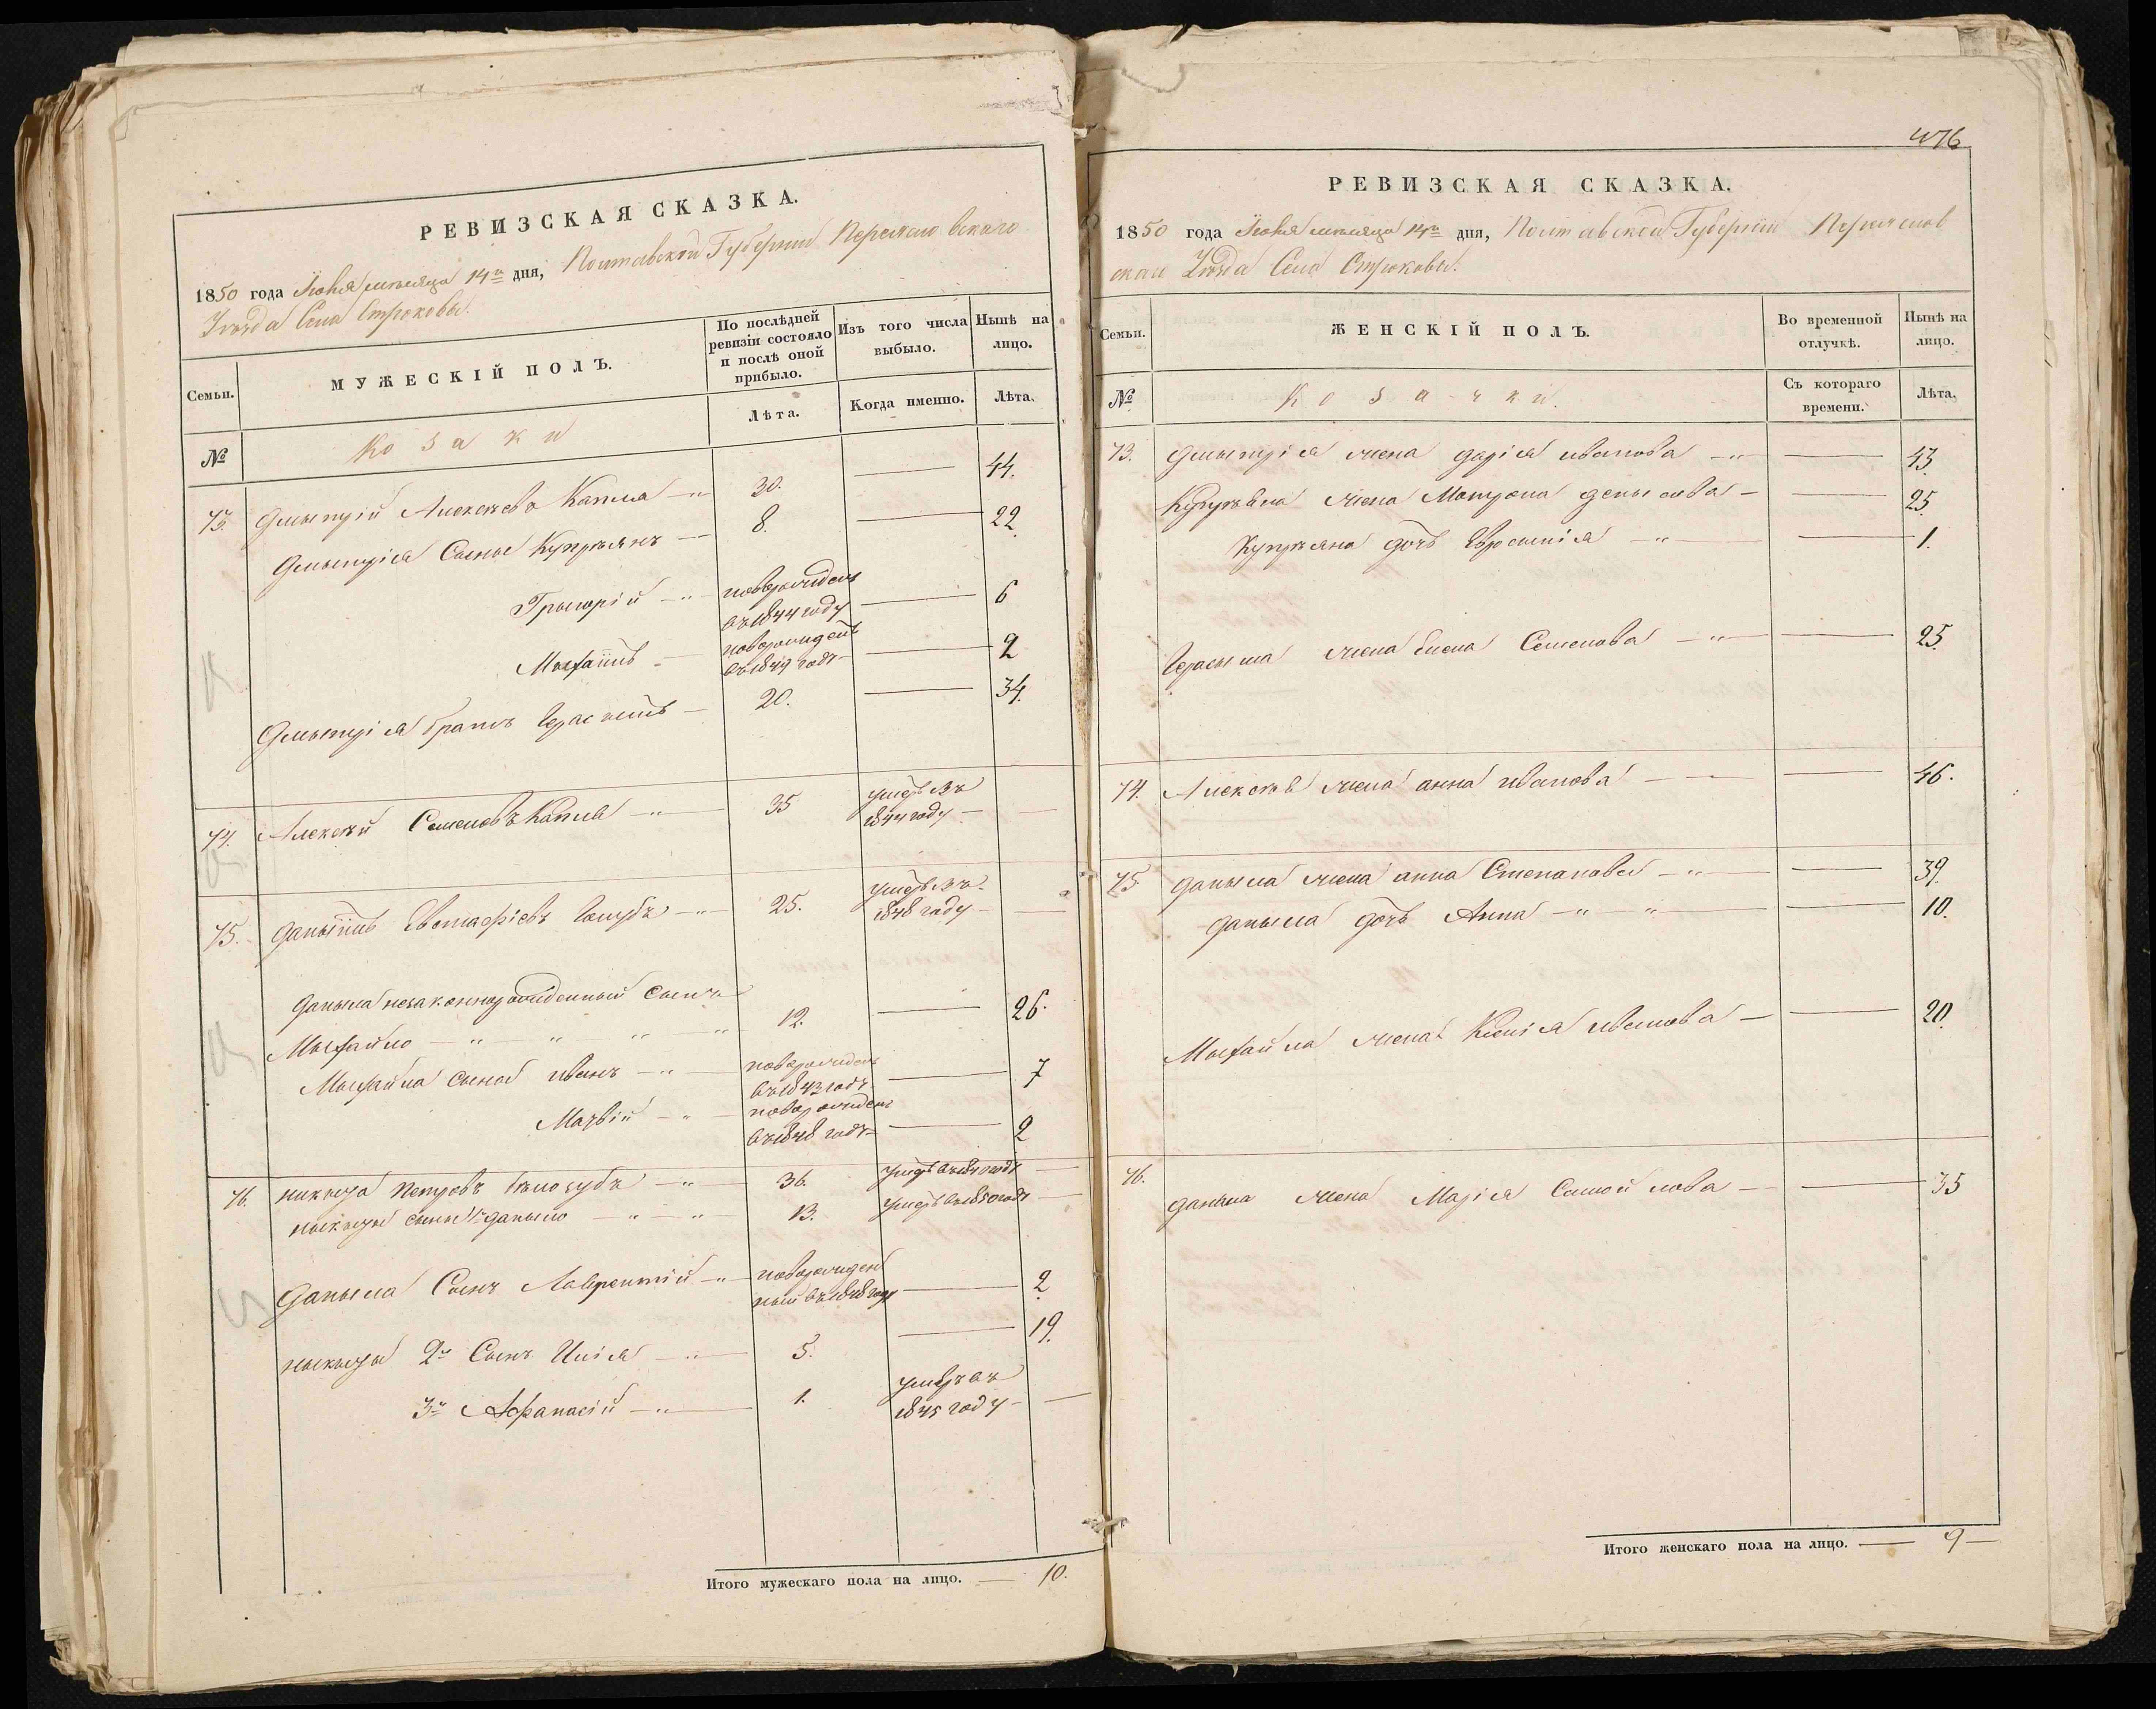 РЕВИЗСКАЯ СКАЗКА.
1850 года Іюня мѣсяца 14го дня, Полтавской Губерніи Переяславскаго
Уѣзда Села Строковы.
Семьи.
МУЖЕСКІЙ ПОЛЪ.
По послѣдней ревизіи состояло и послѣ оной прибыло.
Изъ того числа выбыло.
Нынѣ на лицо.
№
Козаки
Лѣта.
Когда именно.
Лѣта.
73. Дмытрій Алексѣевъ Капля 30. 44.
Дмытрія Сыны Купріянъ 8. 22
Грыгорій новорожденъ въ 1844 году 6
Мыхаилъ новорожденъ въ 1849 годѣ 2
Дмытрія братъ Герасимъ 20. 34.
74. Алексѣй Семеновъ Капля 35 умеръ въ 1844 году
75. Даныилъ Евстафіевъ Голубъ 25. умеръ въ 1848 году
Даныла незаконнорожденный сынъ
Мыхайло 12. 26.
Мыхайла сына Иванъ новорожденъ въ 1843 годѣ 7
Матвій новорожденъ въ 1848 годѣ 2
76. Никыта Петровъ Бѣлозубъ 36 умеръ въ 1840 годѣ
Ныкыты сынъ 1й Даныло 13. умеръ въ 1850 годѣ
Даныла Сынъ Лаврентій новорожденный въ 1848 годѣ 2
Ныкыты 2й Сынъ Илія 5. 19.
3й Афанасій 1. умеръ въ 1845 году
Итого мужескаго пола на лицо. 10.
476
РЕВИЗСКАЯ СКАЗКА.
1850 года Іюня мѣсяца 14го дня, Полтавской Губерніи Переяслов
скаго Уѣзда Села Строковы.
Семьи.
ЖЕНСКІЙ ПОЛЪ.
Во временной отлучкѣ.
Нынѣ на лицо.
№
Козачки.
Съ котораго времени.
Лѣта.
73. Дмытрія жена Дарія Иванова 43
Купріяна жена Матрона Денысова 25
Купріяна дочь Евросинія 1.
Герасыма жена Елена Семенова 25
74. Алексѣя жена Анна Иванова 46.
75 Даныла жена Анна Степанова 39.
Даныла дочь Анна 10.
Мыхайла жена Ксенія Иванова 20.
76. Даныла жена Марія Самойлова 35
Итого женскаго пола на лицо. 9